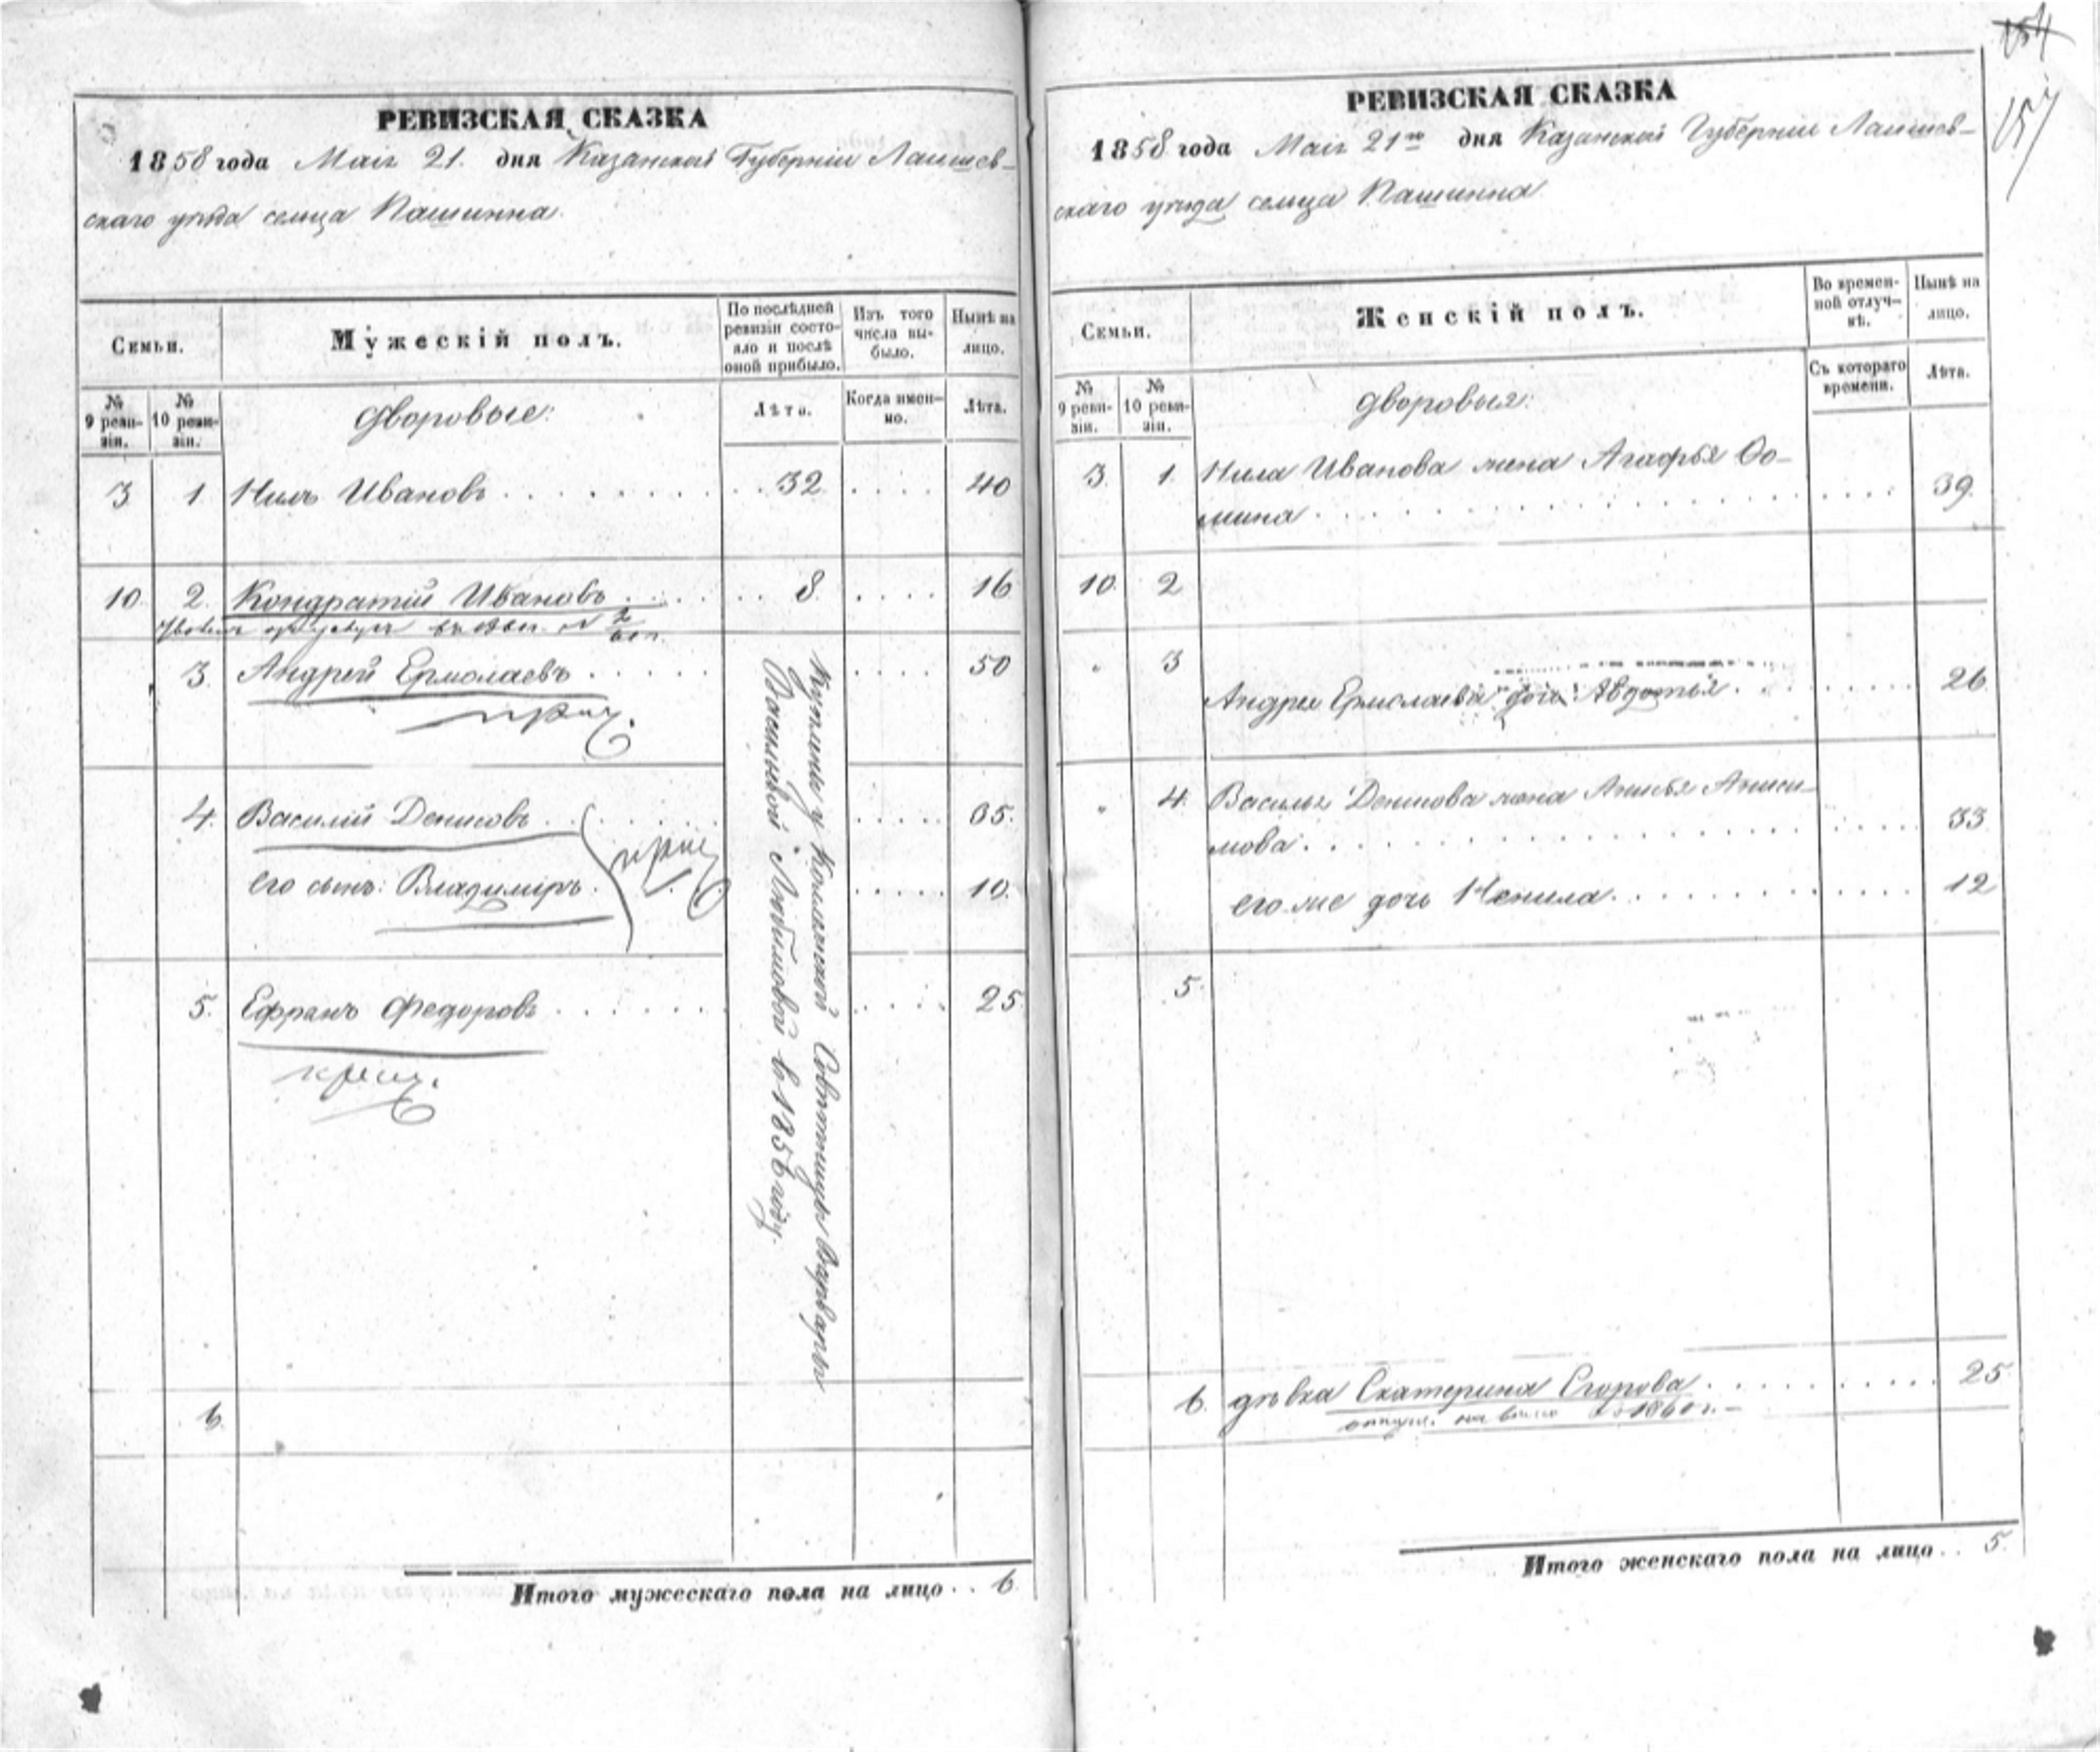 154
157
РЕВИЗСКАЯ СКАЗКА
1858 года Маія 21. дня Казанской Губерніи Лаишев-
скаго уѣзда сельца Пашинна.
Семьи.
Мужескій полъ.
По послѣдней ревизіи состояло и послѣ оной прибыло.
Изъ того числа выбыло.
Нынѣ на лицо.
№ 9 ревизіи.
№ 10 ревизіи.
дворовые:
Лѣта.
Когда именно.
Лѣта.
3 1. Нилъ Ивановъ . . . . . . . . . 32 . . . . 40
10. 2. Кондратій Ивановъ . . . . . . 8. . . . . 16
3. Андрей Ермолаевъ . . . . . . . . . . 50
4. Василій Денисовъ . . . . . . . . 35.
его сынъ: Владиміръ . . . . . . 10.
5. Ефремъ Федоровъ . . . . . . . . . . . 25
Куплены у Коллежской Совѣтницы Варвары
Васильевой Любимовой в 1856 году.
6.
Итого мужескаго пола на лицо . . 6
РЕВИЗСКАЯ СКАЗКА
1858 года Маія 21го дня Казанской Губерніи Лаишев-
скаго уѣзда сельца Пашинна
Семьи.
Женскій полъ.
Во временной отлучкѣ.
Нынѣ на лицо.
№ 9 ревизіи.
№ 10 ревизіи.
дворовыя:
Съ котораго времени.
Лѣта.
3. 1. Нила Иванова жена Агафья Ѳо-
мина . . . . . . . . . . . . . . . . 39.
10. 2
" 3
Андрея Ермолаева дочь Авдотья . . . . . . . . 26
" 4. Василья Денисова жена Анисья Аниси-
мова . . . . . . . . . . . . . . . . 33
его же дочь Ненила . . . . . . . . . . . . 12
5.
6. дѣвка Екатерина Егорова . . . . . . . . . . 25
на волю 1860 г.
Итого женскаго пола на лицо . . 5.